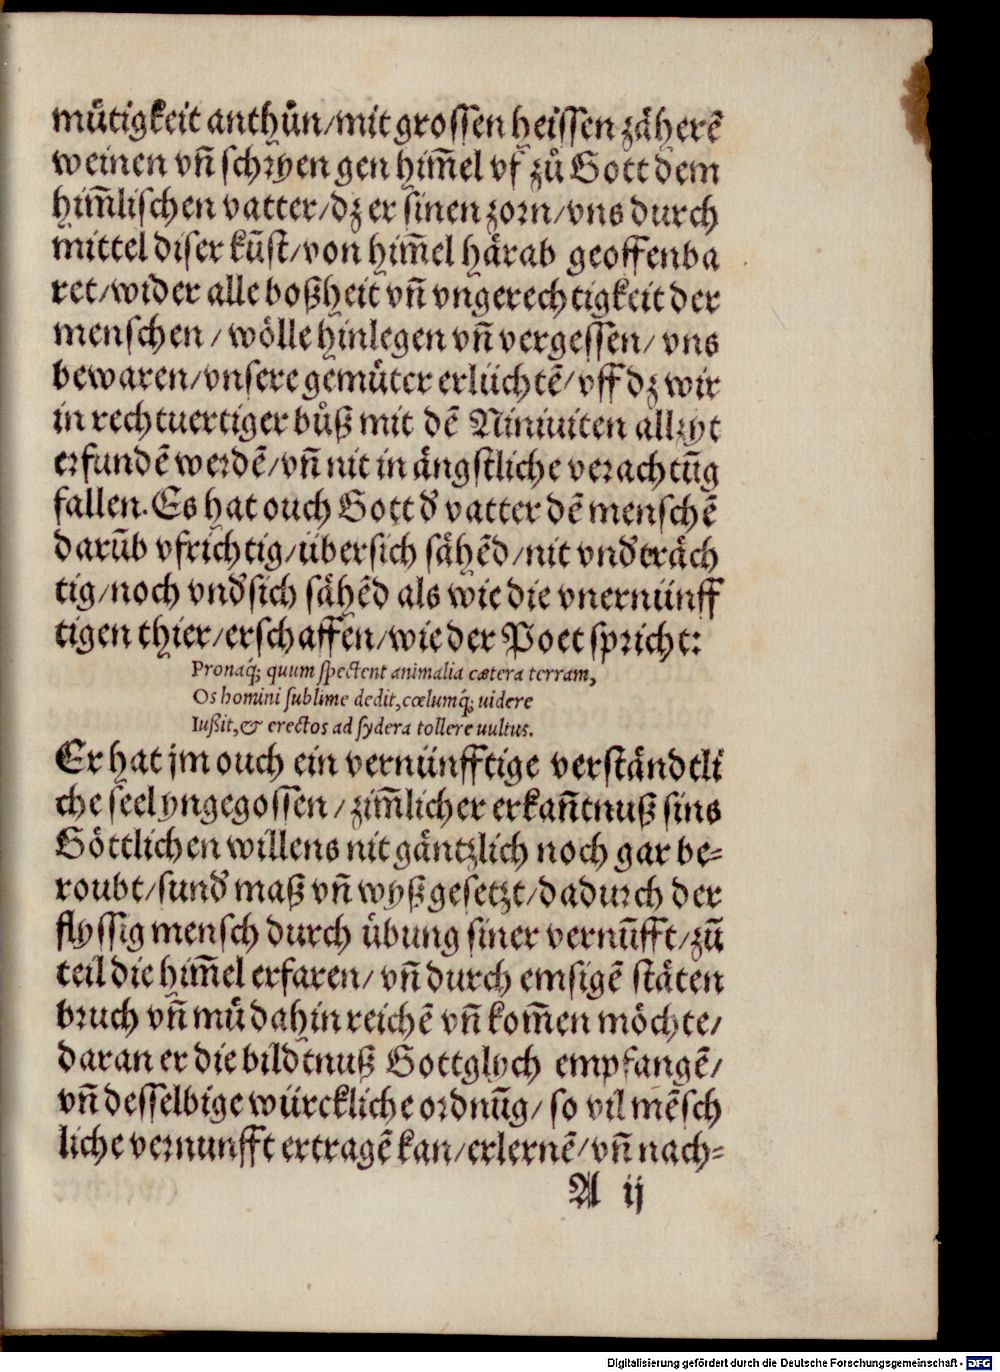 mütigkeit anthůn/mit grossen heissen zäherē
weinen vñ schryen gen him̄el vf zů Gott dem
him̄lischen vatter/dz er sinen zorn/vns durch
mittel diser kūst/von him̄el härab geoffenba
ret/wider alle boßheit vñ vngerechtigkeit der
menschen/wölle hinlegen vñ vergessen/vns
bewaren/vnsere gemüter erlüchtē/vff dz wir
in rechtuertiger bůß mit dē Niniuiten allzyt
erfundē werdē/vñ nit in ängstliche verachtūg
fallen. Es hat ouch Gott d̄ vatter dē menschē
darūb vfrichtig/übersich sähēd/nit vnd̄träch
tig/noch vnd̄sich sähēd als wie die vnernünff
tigen thier/erschaffen/wie der Poet spricht:
Pronaq́; quum spectent animalia cætera terram,
Os homini sublime dedit, cœlumq́; uidere
Iußit, & erectos ad sydera tollere uultus.
Er hat jm ouch ein vernünfftige verständtli
che seel yngegossen/zim̄licher erkañtnuß sins
Göttlichen willens nit gäntzlich noch gar be-
roubt/sund̄ maß vñ wyß gesetzt/dadurch der
flyssig mensch durch übung siner vernūfft/zū
teil die him̄el erfaren/vñ durch emsigē stäten
bruch vñ mü dahin reichē vñ kom̄en möchte/
daran er die bildtnuß Gottglych empfangē/
vñ desselbige würckliche ordnūg/so vil mēsch
liche vernunfft ertragē kan/erlernē/vñ nach-
A ij
Digitalisierung gefördert durch die Deutsche Forschungsgemeinschaft - DFG